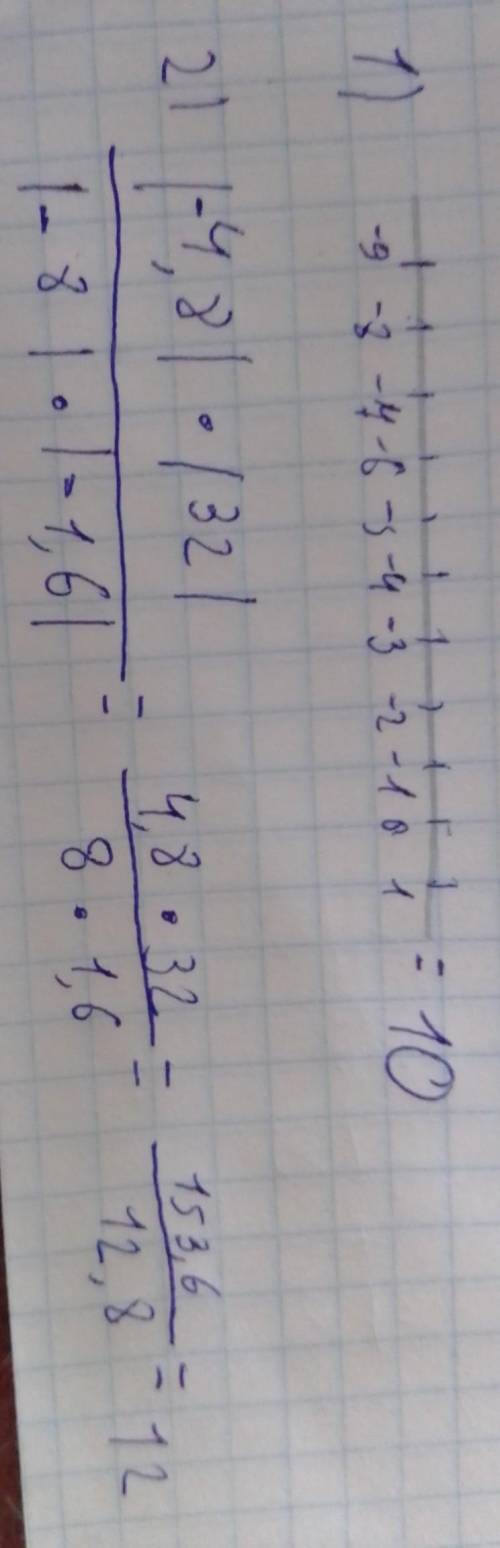 1) -9 -8 -7 -6 -5 -4 -3 -2 -1 0 1 = 10
2) |-4,8| · |32| / |-8| · |-1,6| = 4,8 · 32 / 8 · 1,6 = 153,6 / 12,8 = 12